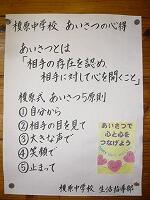 榎原中学校 あいさつの心得
あいさつとは
「相手の存在を認め、
相手に対して心を開くこと」
榎原式 あいさつ5原則
①自分から
②相手の目を見て
③大きな声で
④笑顔で
⑤止まって
あいさつで
心と心を
つなげよう
榎原中学校 生活指導部